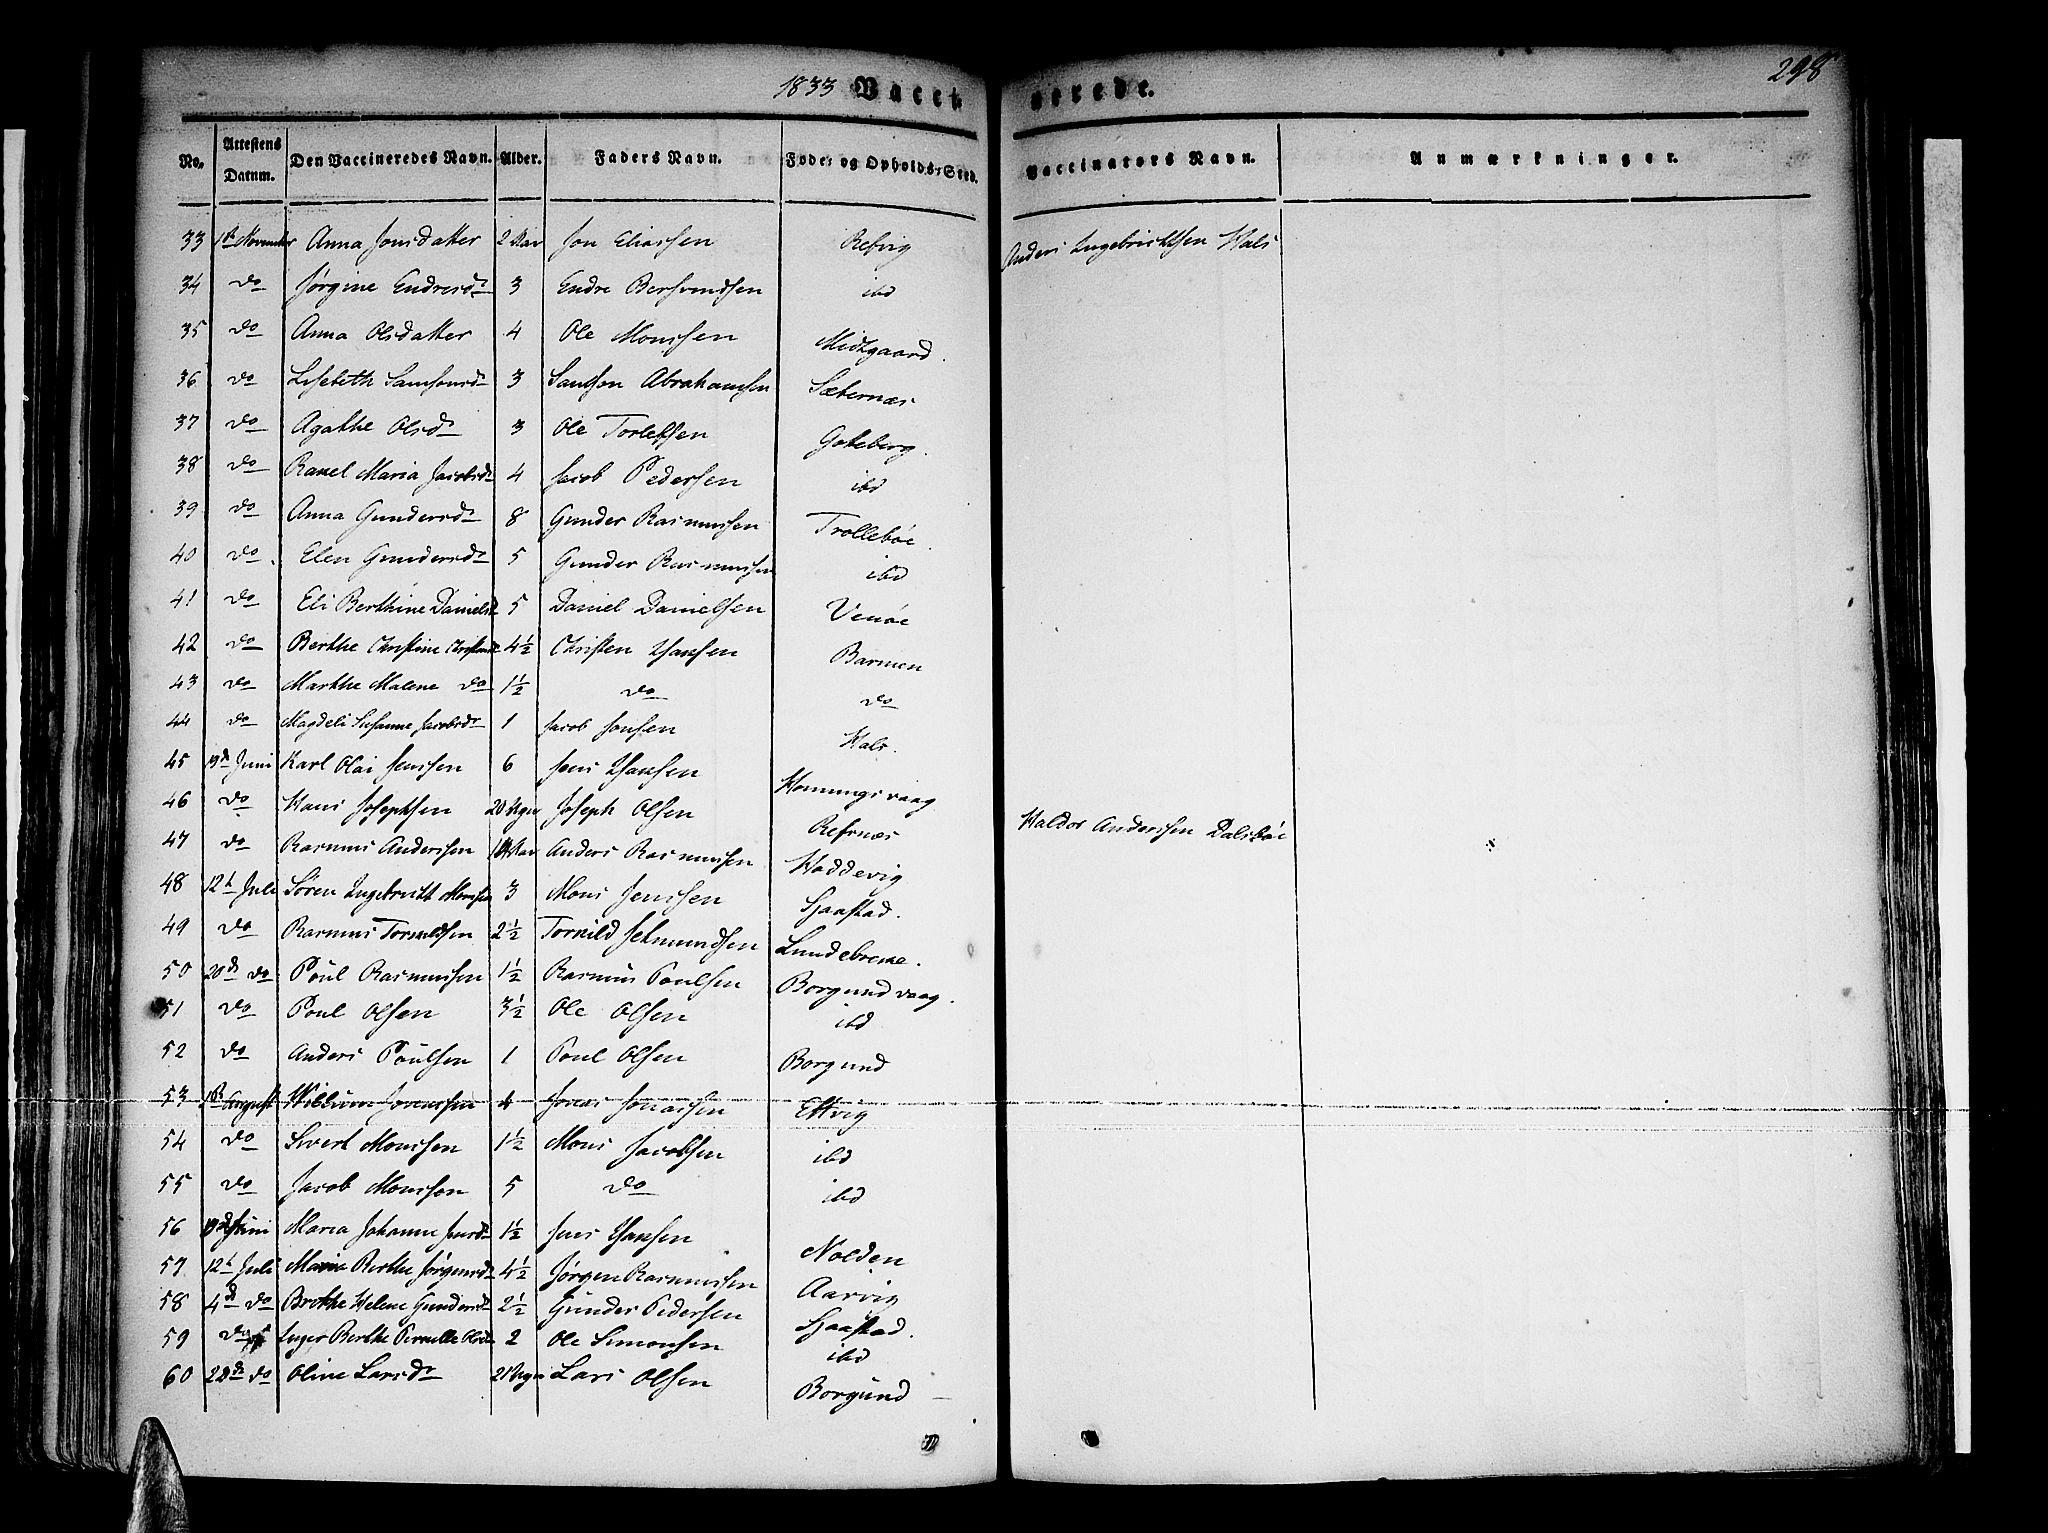 1833 Vaccinerede. 298
No. Attestens Datum. Den Vaccineredes Navn. Alder. Faders Navn. Føde- og Opholds-Sted. Vaccinators Navn. Anmærkninger.
33 1ste November Anna Jonsdatter 2 Aar Jon Eliassen Refvig Anders Ingebrichtsen Hals
34 do Jørgine Endresdr 3 Endre Bersvendsen ibd
35 do Anna Olsdatter 4 Ole Monssen Midtgaard.
36 do Lisebeth Samsonsdr 3 Samson Abrahamsen Sæternæs
37 do Agathe Olsdr 3 Ole Torlefsen Goteberg.
38 do Ranel Maria Jacobsdr 4 Jacob Pedersen ibd
39 do Anna Gundersdr 8 Gunder Rasmussen Trollebøe.
40 do Elen Gundersdr 5 Gunder Rasmussen ibd
41 do Eli Berthine Danielsdr 5 Daniel Danielsen Venøe
42 do Berthe Christine Christensdr 4½ Christen Hansen Barmen
43 do Marthe Malene do 1½ do do
44 do Magdeli Susanne Jacobsdr 1 Jacob Jonsen Hals.
45 19de Juni Karl Olai Jenssen 6 Jens Hansen Honningsvaag
46 do Hans Josephsen 20 Uger Joseph Olsen Refsnæs Haldor Anderssen Dalsbøe
47 do Rasmus Anderssen Aar Anders Rasmussen Hoddevig
48 12te Juli Søren Ingebricht Monssen 3 Mons Jenssen Sjaastad.
49 do Rasmus Tornildsen 2½ Tornild Setmundsen Lundebrekke.
50 20de do Poul Rasmussen 1½ Rasmus Poulsen Borgundvaag.
51 do Poul Olsen 3½ Ole Olsen ibd
52 do Anders Poulsen 1 Poul Olsen Borgund
53 August Willum Jonassen 4 Jonas Jonassen Ettvig
54 do Sivert Monssen 1½ Mons Jacobsen ibd
55 do Jacob Monssen 5 do ibd
56 19de Juni Maria Johanne Jensdr 1½ Jens Hansen Nolden
57 12te Juli Maria Berthe Jørgensdr 4½ Jørgen Rasmussen Aarvig
58 4de do Brethe Helene Gundersdr 2½ Gunder Pedersen Sjaastad.
59 do Inger Berthe Pernille Olsdr 2 Ole Simonsen ibd
60 22de do Oline Larsdr 21 Uger Lars Olsen Borgund